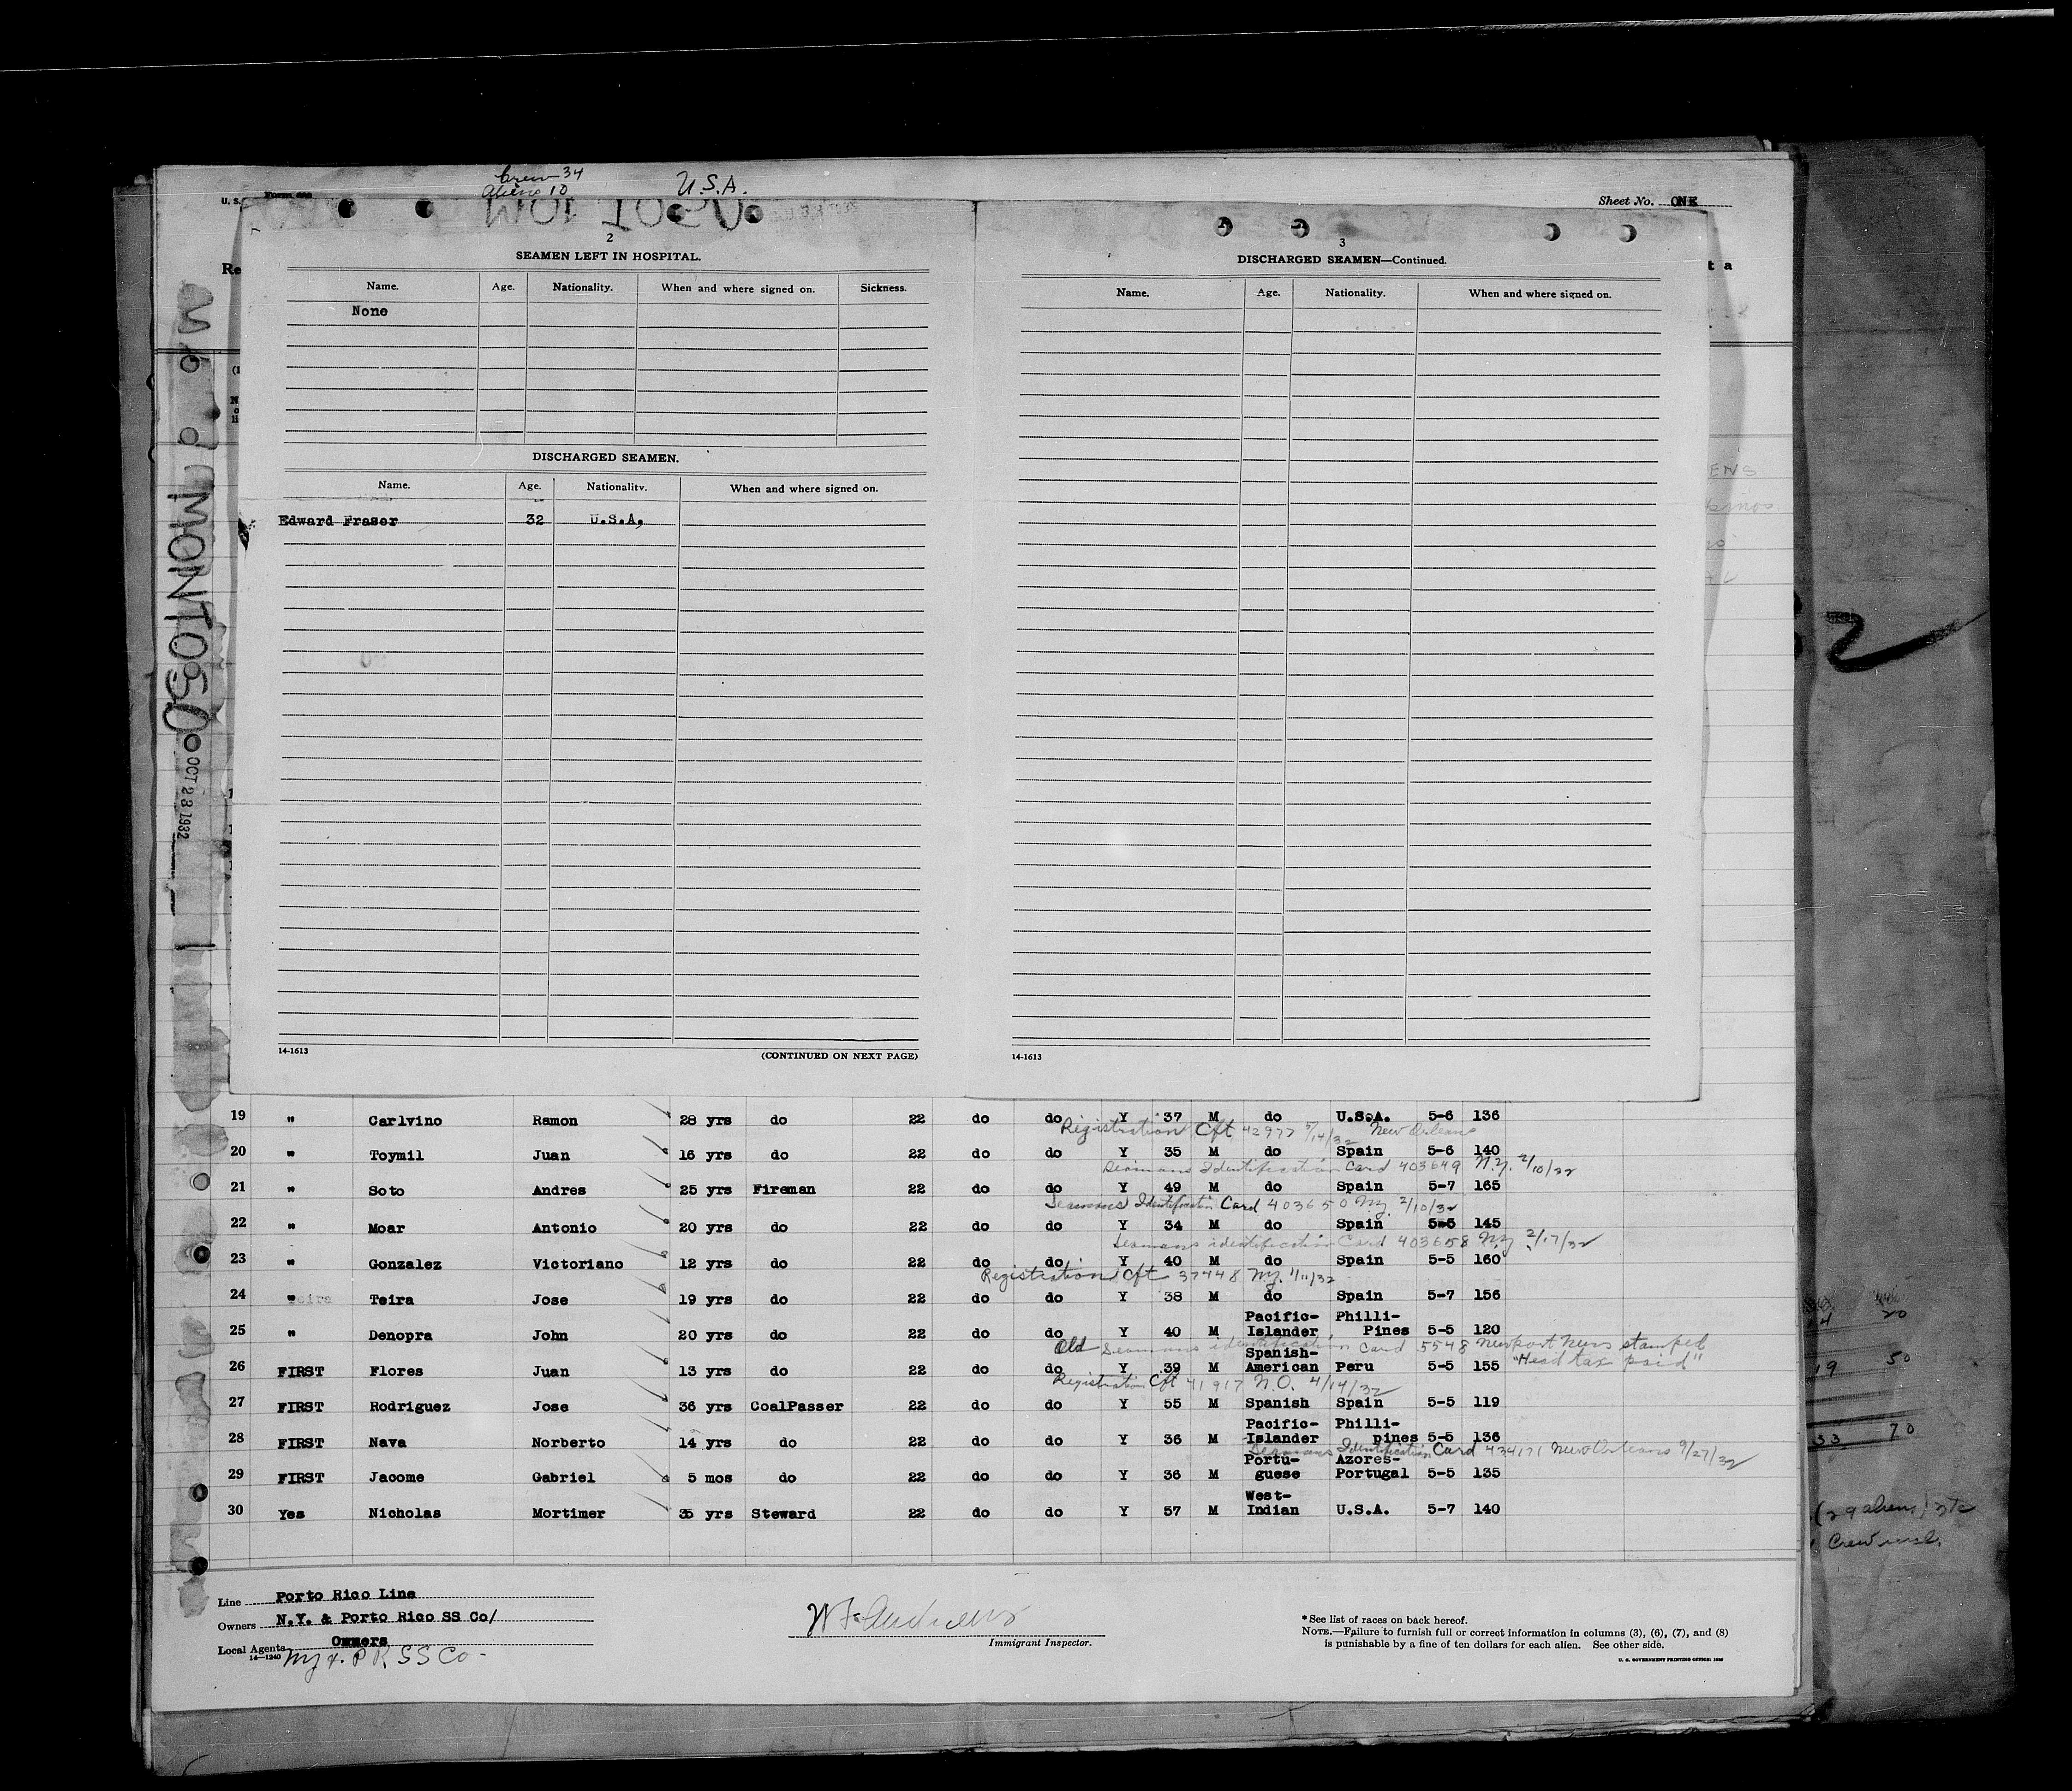 Crew 34
Aliens 10
U.S.A.
U. S.
Sheet No. ONE
MONTOSO
OCT 28 1932
2
SEAMEN LEFT IN HOSPITAL.
Name. Age. Nationality. When and where signed on. Sickness.
None
DISCHARGED SEAMEN.
Name. Age. Nationality. When and where signed on.
Edward Fraser 32 U.S.A.
14-1613 (CONTINUED ON NEXT PAGE)
3
DISCHARGED SEAMEN—Continued.
Name. Age. Nationality. When and where signed on.
14-1613
19 " Carlvino Ramon 28 yrs do 22 do do Y 37 M do U.S.A. 5-6 136
Registration Cft 42977 5/14/32 New Orleans
20 " Toymil Juan 16 yrs do 22 do do Y 35 M do Spain 5-6 140
Seamans Identification Card 403649 N.Y. 2/10/32
21 " Soto Andres 25 yrs Fireman 22 do do Y 49 M do Spain 5-7 165
Seamans Identification Card 403650 N.Y. 2/10/32
22 " Moar Antonio 20 yrs do 22 do do Y 34 M do Spain 5-5 145
Seamans identification Card 403658 N.Y. 2/17/32
23 " Gonzalez Victoriano 12 yrs do 22 do do Y 40 M do Spain 5-5 160
Registration Cft 37448 N.Y. 1/11/32
24 " Teira Jose 19 yrs do 22 do do Y 38 M do Spain 5-7 156
25 " Denopra John 20 yrs do 22 do do Y 40 M Pacific-Islander Philli-Pines 5-5 120
Old Seamans identification Card 5548 Newport News stamped
"Head tax paid"
26 FIRST Flores Juan 13 yrs do 22 do do Y 39 M Spanish-American Peru 5-5 155
Registration Cft 41917 N.O. 4/14/32
27 FIRST Rodriguez Jose 36 yrs CoalPasser 22 do do Y 55 M Spanish Spain 5-5 119
28 FIRST Nava Norberto 14 yrs do 22 do do Y 36 M Pacific-Islander Philli-pines 5-5 136
Seamans Identification Card 434171 New Orleans 9/27/32
29 FIRST Jacome Gabriel 5 mos do 22 do do Y 36 M Portu-guese Azores-Portugal 5-5 135
30 Yes Nicholas Mortimer 35 yrs Steward 22 do do Y 57 M West-Indian U.S.A. 5-7 140
Line Porto Rico Line
Owners N.Y. & Porto Rico SS Co/
Local Agents Owners
14-1240 NY & P R SS Co-
Immigrant Inspector.
* See list of races on back hereof.
NOTE.—Failure to furnish full or correct information in columns (3), (6), (7), and (8)
is punishable by a fine of ten dollars for each alien. See other side.
U. S. GOVERNMENT PRINTING OFFICE: